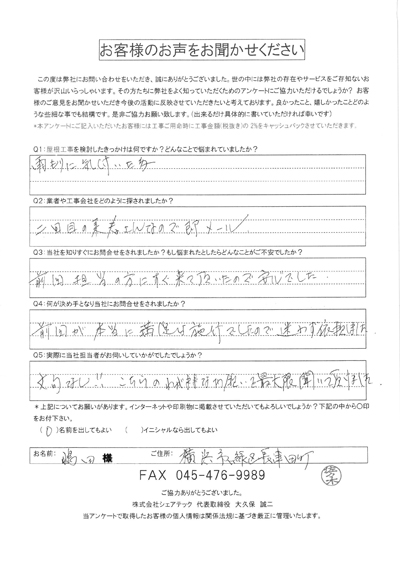 お客様のお声をお聞かせください
この度は弊社にお問い合わせをいただき、誠にありがとうございました。世の中には弊社の存在やサービスをご存知ないお
客様が沢山いらっしゃいます。その方たちに弊社をよく知っていただくためのアンケートにご協力いただけるでしょうか? お客
様のご意見をお聞かせいただき今後の活動に反映させていただきたいと考えております。良かったこと、嬉しかったことどのよ
うな些細な事でも結構です。是非ご協力お願い致します。(出来るだけ具体的に書いていただければ幸いです)
*本アンケートにご記入いただいたお客様には工事ご用命時に工事金額(税抜き)の2%をキャッシュバックさせていただきます。
Q1:屋根工事を検討したきっかけは何ですか?どんなことで悩まれていましたか?
雨
Q2:業者や工事会社をどのように探されましたか?
二回目の
なので即メール
Q3:当社を知りすぐにお問合せをされましたか?もし悩まれたとしたらどんなことがご不安でしたか?
前回担当の方にすぐ来て頂いたので安心でした
Q4:何が決め手となり当社にお問合せをされましたか?
前回が本当に満足な施行でしたので迷わず依頼しました
Q5:実際に当社担当者がお伺いしていかがでしたでしょうか?
文句なし!!こちらの
最大限聞いて
*上記についてお願いがあります。インターネットや印刷物に掲載させていただいてもよろしいでしょうか?下記の中から○印
をお付下さい。
(○)名前を出してもよい ( )イニシャルなら出してもよい
お名前: 嶋田 様 ご住所: 横浜市緑区長津田町
FAX 045-476-9989
ご協力ありがとうございました。
株式会社シェアテック 代表取締役 大久保 誠二
当アンケートで取得したお客様の個人情報は関係法規に基づき厳正に管理いたします。